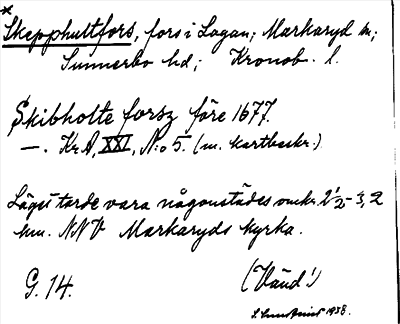 *
Skepphultfors, fors i Lagan; Markaryd sn;
Sunnerbo hd; Kronob. l.
Skibholte forsz före 1677.
—. Kr A, XXI, N:o 5. (m. kartbeskr.)
Läget torde vara någonstädes omkr. 2½-3,2
km. NNV Markaryds kyrka.
G. 14. (Vänd!)
1938.